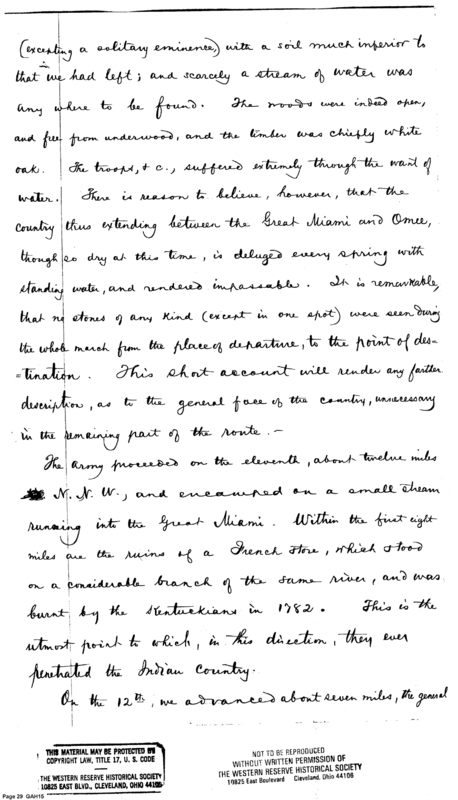 (excepting a solitary eminence,) with a soil much inferior to
that we had left; and scarcely a stream of water was
any where to be found. The woods were indeed open,
and free from underwood, and the timber was chiefly white
oak. The troops, & c., suffered extremely through the want of
water. There is reason to believe, however, that the
country thus extending between the Great Miami and Omee,
though so dry at this time, is deluged every spring with
standing water, and rendered impassable. It is remarkable,
that no stones of any kind (except in one spot) were seen during
the whole march from the place of departure, to the point of des=
=tination. This short account will render any farther
description, as to the general face of the country, unnecessary
in the remaining part of the route. —
The army proceeded on the eleventh, about twelve miles
N. N. W., and encamped on a small stream
running into the Great Miami. Within the first eight
miles are the ruins of a French store, which stood
on a considerable branch of the same river, and was
burnt by the Kentuckians in 1782. This is the
utmost point to which, in this direction, they ever
penetrated the Indian country.
On the 12th, we advanced about seven miles, the general
THIS MATERIAL MAY BE PROTECTED BY
COPYRIGHT LAW, TITLE 17, U. S. CODE
THE WESTERN RESERVE HISTORICAL SOCIETY
10825 EAST BLVD., CLEVELAND, OHIO 44106
NOT TO BE REPRODUCED
WITHOUT WRITTEN PERMISSION OF
THE WESTERN RESERVE HISTORICAL SOCIETY
10825 East Boulevard Cleveland, Ohio 44106
Page 29 GAH15